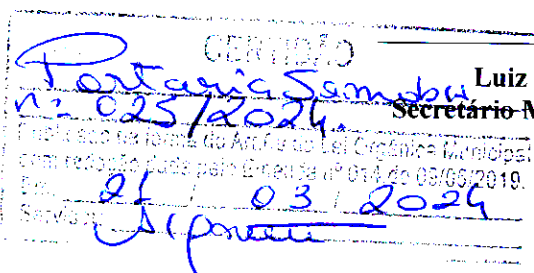 CERTIDÃO
Portaria Semobi
Luiz
nº 025/2024.
Secretário M
Publicado na forma do Art. da Lei Orgânica Municipal
com redação dada pela Emenda nº 014 de 09/05/2019.
Em: 21 / 03 / 2024
Servidor: